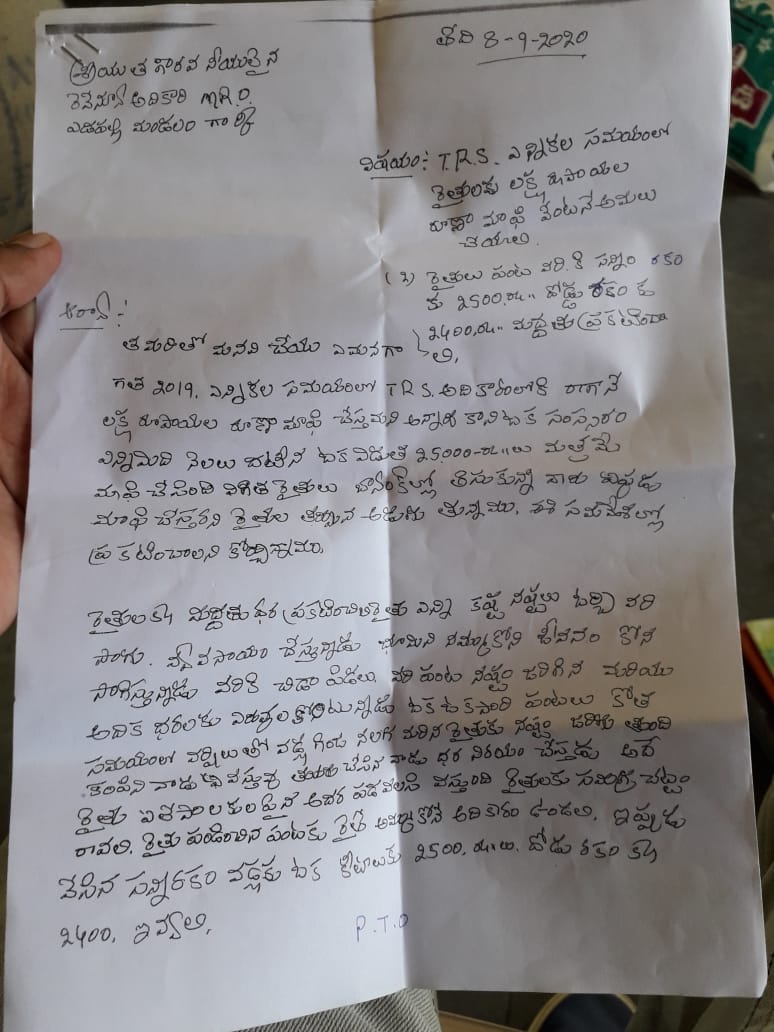 తేది 8-9-2020
శ్రీయుత గౌరవ నీయులైన
రెవేన్యూ అదికారి MRO.
ఎడపల్లి మండలం గార్కి
విషయం:- T.R.S. ఎన్నికల సమయంలో
రైతులకు లక్ష రూపాయల
రూణా మాఫి వేంటనే అమలు
చేయాలి.
(2) రైతులు పంట వరి.కి సన్నం రకం
కు 2500,రూ" దోడ్డు రకం కు
2400,రూ" మద్దతు ప్రకటించా
లి,
ఆర్యా:-
తమరితో మనవి చేయు ఏమనగా
గత 2019, ఎన్నికల సమయంలో T.R.S. అదికారంలోకి రాగానే
లక్ష రూపాయల రూణా మాఫి చేస్తమని అన్నారు కాని ఒక సంస్సరం
ఎన్నిమిది నెలలు దాటిన ఒక విడుత 25000-రూ"లు మత్రమే
మాఫి చేసింది మిగిత రైతులు బ్యాంక్‌ల్లో తిసుకున్న వారు ఎప్పుడు
మాఫి చేస్తరని రైతుల తర్పున అడుగు తున్నము,
ప్రకటించాలని కోర్చున్నాము,
రైతులకు మద్దతు ధర ప్రకటించాలి రైతు ఎన్ని కష్ట నష్టలు ఓర్చి వరి
సాగు. వ్యవసాయం చేస్తున్నడు భూమిని నమ్ముకోని జీవనం కోన
సాగిస్తున్నడు వరికి చిడా పిడలు, వరి పంట నష్టం జరిగిన మరియు
అదిక ధరలకు ఎరువులు కోంటున్నడు ఒక ఒకసారి పంటలు కోత
సమయంలో వర్షాలు తో వడ్ల గింజ నలగ మరిన రైతుకు నష్టం జరుగు తుంది
కంపెని వాడు వస్తువు తయరు చేసిన వాడు ధర నిరయం చేస్తడు అదే
రైతు పాలకులపైన అదర పడ వలసి వస్తుంది రైతులకు సమగ్ర చట్టం
రావలి, రైతు పండించిన పంటకు రైతే అమ్ముకోనే అదికారం ఉండలి, ఇప్పుడు
వేసిన సన్నరకం వడ్లకు ఒక కీంటాలుకు 2500,రూ"లు, దోడు రకం కు
2400, ఇవ్వాలి,
P.T.O